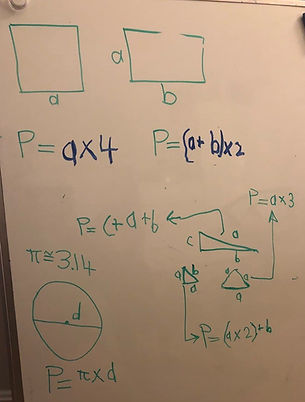 a
a
b
P = a×4
P = (a+b)×2
P = a×3
P = C+a+b
c
a
b
π≅3.14
a
b
a
a
a
a
d
P = (a×2)+b
P = π×d